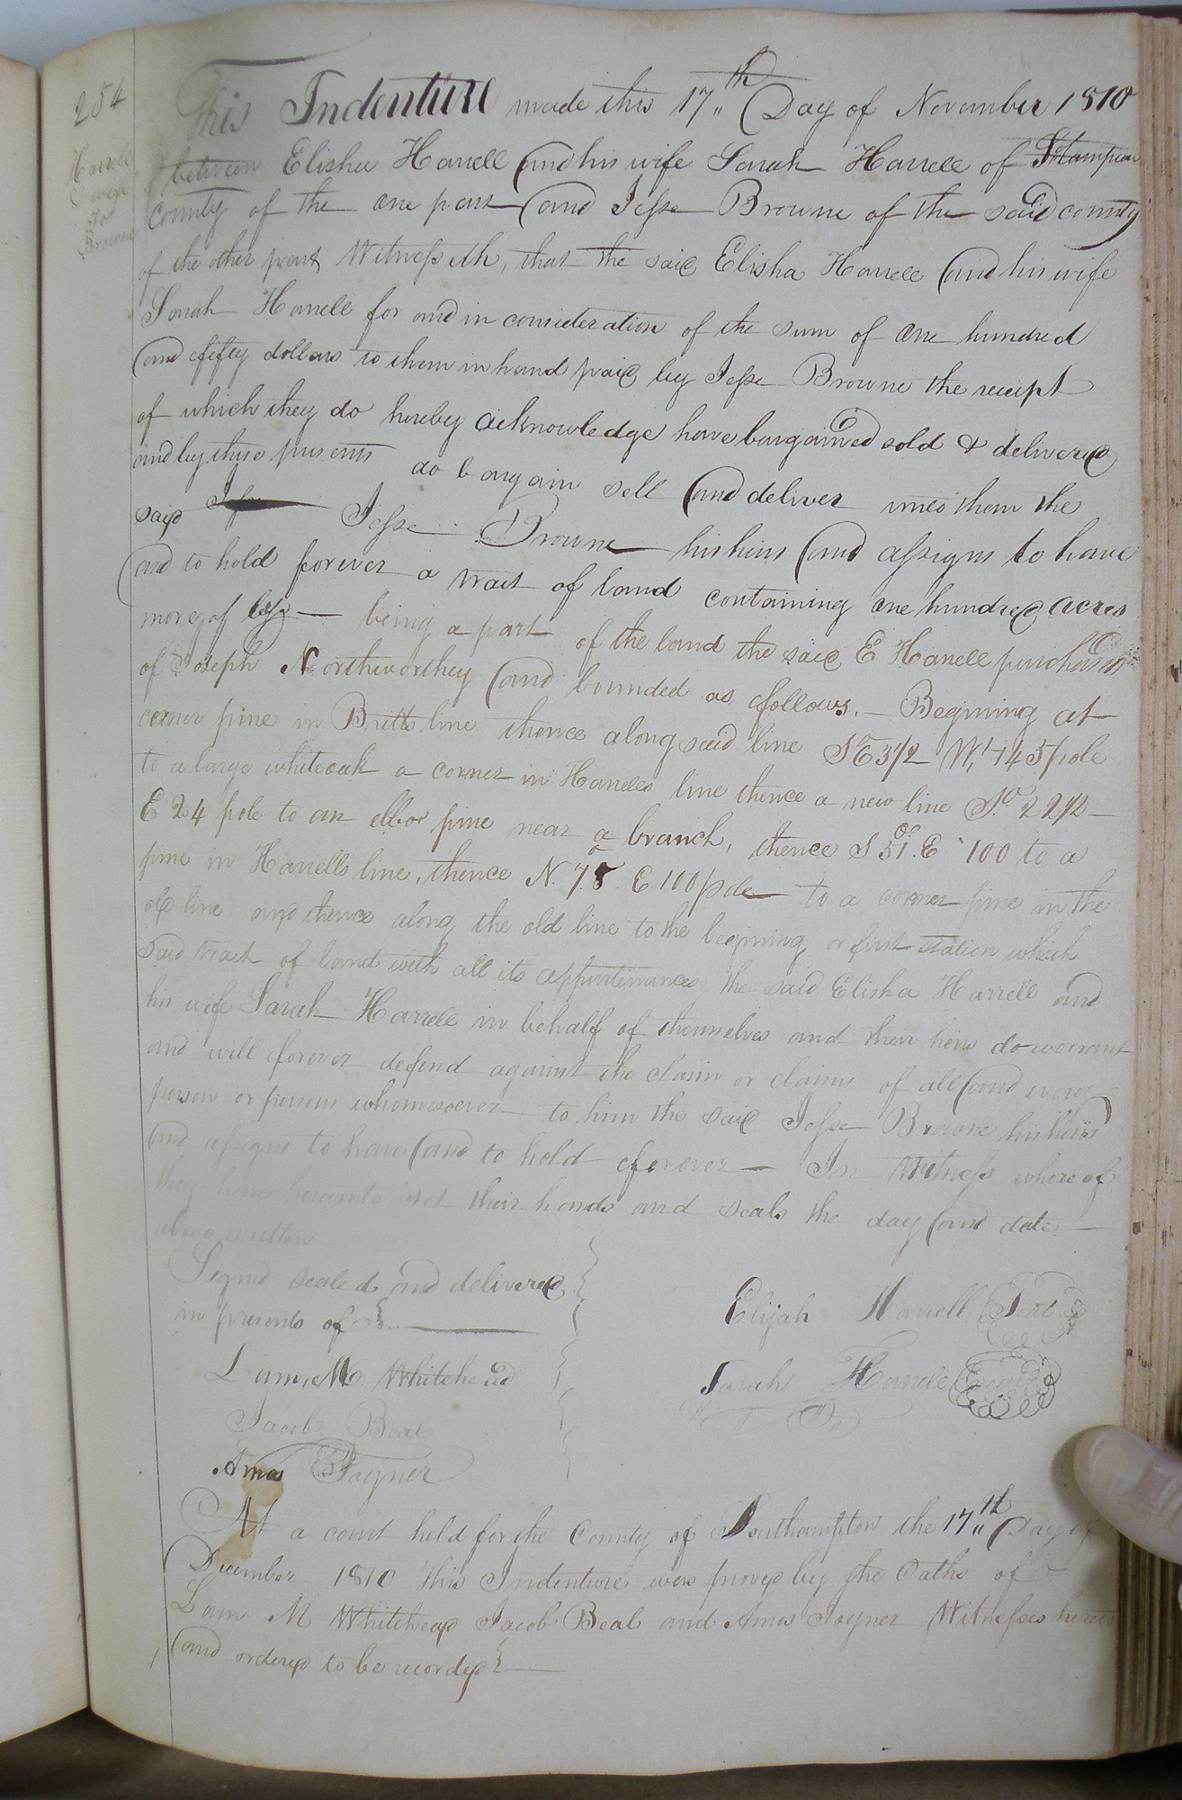 254
Harrell
Deed
To
Browne
This Indenture made this 17th Day of November 1810
between Elisha Harrell and his wife Sarah Harrell of Southampton
County of the one part and Jesse Browne of the said county
of the other part Witnesseth, that the said Elisha Harrell and his wife
Sarah Harrell for and in consideration of the sum of one hundred
and fifty dollars to them in hand paid by Jesse Browne the receipt
of which they do hereby acknowledge have bargained sold & delivered
and by these presents do bargain sell and deliver unto them the
said Jesse Browne his heirs and assigns to have
and to hold forever a tract of land containing one hundred acres
more of less being a part of the land the said E Harrell purchased
of Joseph Northworthy and bounded as follows. Begining at
corner pine in Britts line thence along said line So E 3/2 W, 145 pole
to a large whiteoak a corner in Harrells line thence a new line So. 22 1/2
E 24 pole to an elbow pine near a branch, thence S 51. E 100 to a
pine in Harrells line, thence N. 75 E 100 pole to a corner pine in the
old line and thence along the old line to the begining or first station which
said tract of land with all its appurtenances the said Elisha Harrell and
his wife Sarah Harrell in behalf of themselves and their heirs do warrant
and will forever defend against the claim or claims of all and every
person or persons whomesoever to him the said Jesse Browne his heirs
and assigns to have and to hold forever In Witness whereof
they have hereunto set their hands and seals the day and date
above written
Signed sealed and delivered
in presents of
Elijah Harrell Seal
Sarah Harrell Seal
M Whitehead
Jacob Beal
Amos Joyner
At a court held for the County of Southampton the 17th Day of
December 1810 This Indenture was proved by the Oaths of
M Whitehead Jacob Beal and Amos Joyner Witnesses hereto
and ordered to be recorded